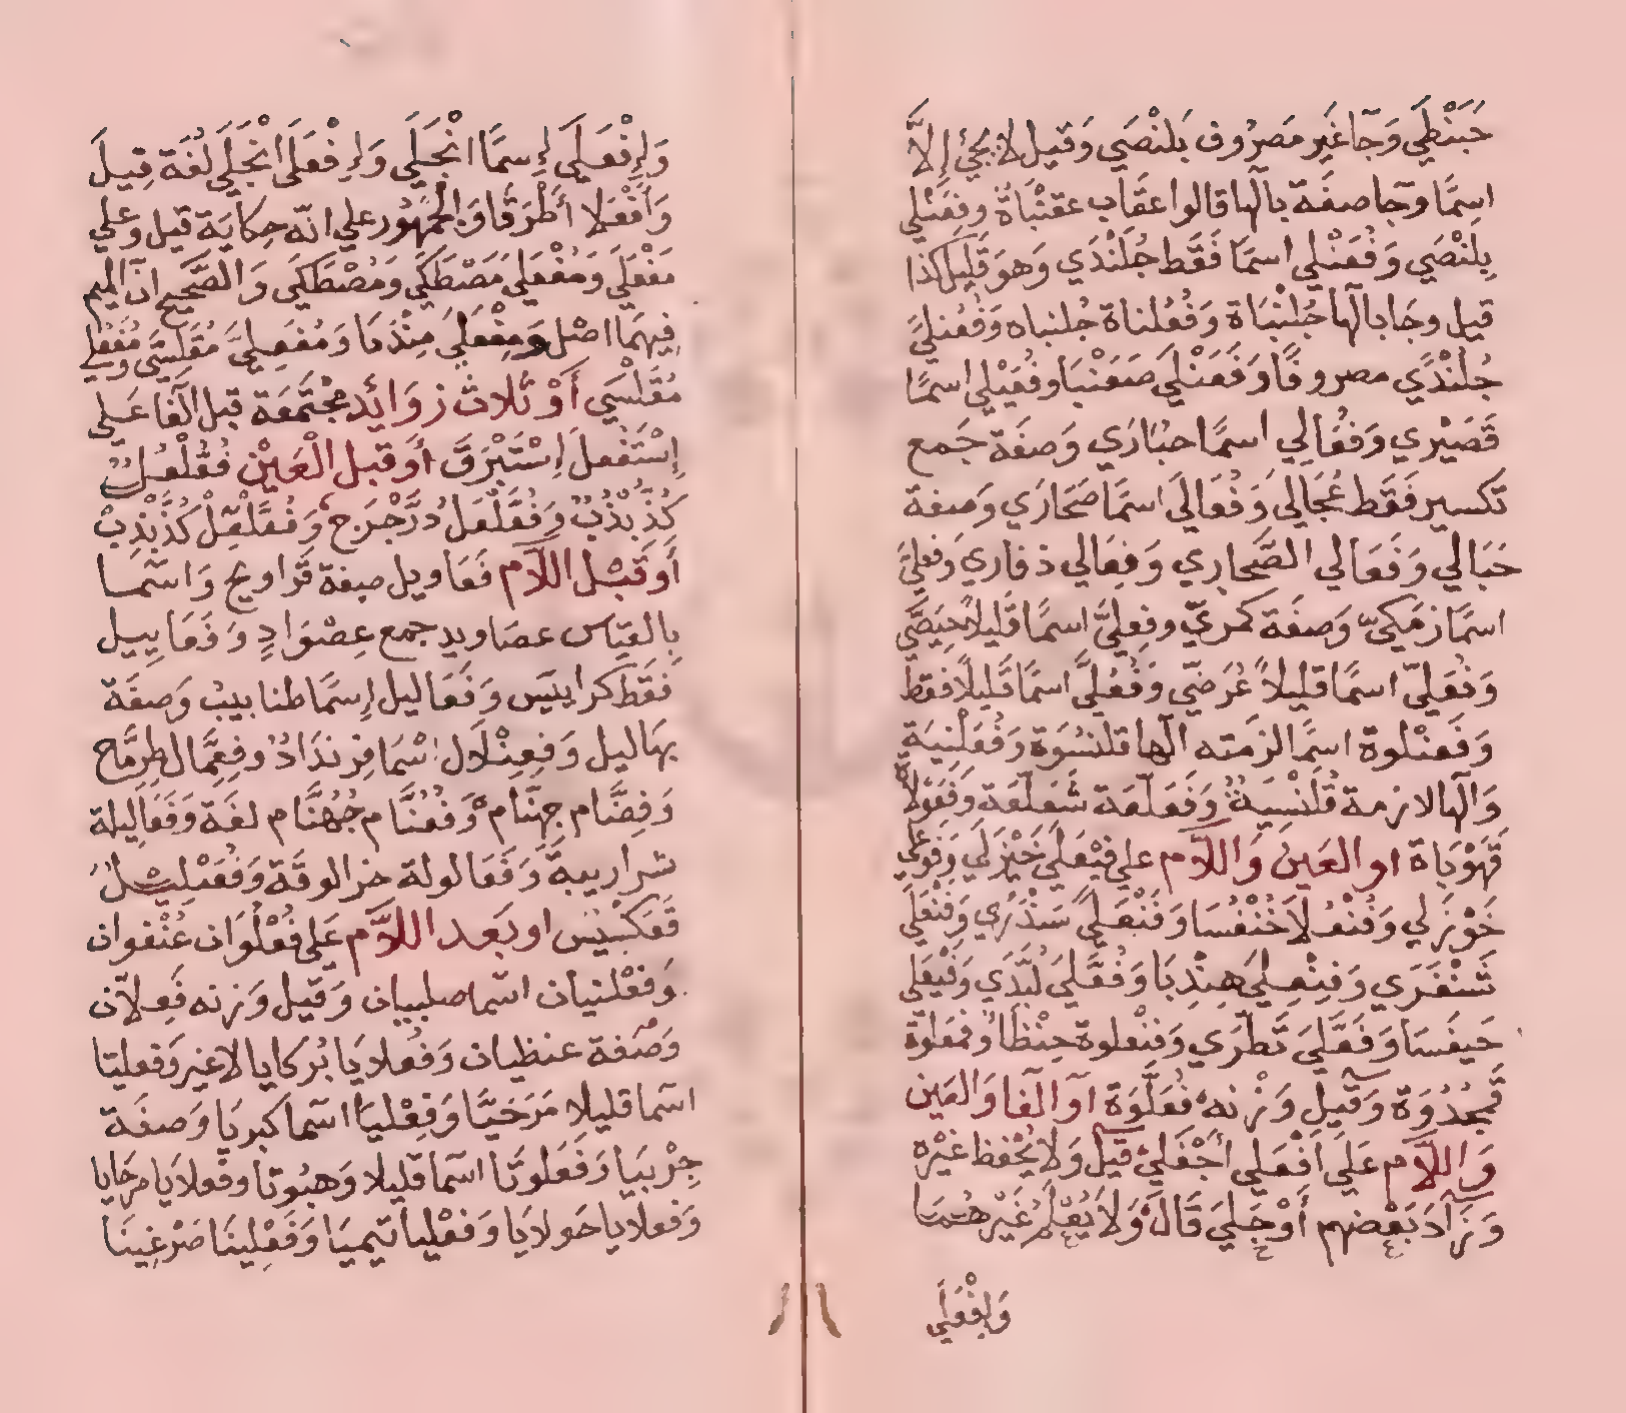 حَبَنْطَي وَجَآ غَير مَصرُوف بَلَنْصَي وَقيل لا يَجئ إلاَّ
اسمًا وجآ صفَة بالهآ قالوا عقاب عقنْبَاة وفِعَنْلي
بِلِنْصَي وَفُعَنْلي اسمًا فَقَط جُلَنْدَي وَهوَ قَليل كذا
قيل وجَا بالهآ جُلَنْبَاة وَفُعُلناة جُلنباه وَفُعُنلَيً
جُلُنْدًي مصروفًا وَفَعَنْلَي صَعَنْبَا وفُعَيْلي اسمًا
قَصَيْري وَفعَالي اسمًا حبَارَي وَصفَة جَمع
تكسير فَقَط عُجَالي وَفَعَالَي اسمًا صَحَارَي وَصفة
حَبَالي وَفَعَالي الصَّحاري وَفِعَالي ذفاري وَفعلَّي
اسمًا زمَكيّ وَصفَة كمرَيّ وفِعِليَّ اسمًا قَليلاً حِيَضَّي
وَفُعَليّ اسمًا قليلاً عُرَضّي وَفُعُلَّي اسمًا قَليلاً فقط
وَفَعَنْلوة اسمًا لزمَته الهآ قلنسُوَة وَفُعَلْنِيَة
وَالهآ لازمة قُلَنْسيَةٌ وَفَعَلّعَة شَعَلّعَة وَفَعَوْلاة
قَهَوْبَاة او العَين وَاللاّم علي فَيْعَلَي خَيْزَلَي وَفَوعَلي
خَوْزَلي وَفُنْعُلاَ خُنْفُسَا وَفَنْعَلي سَنْدَرَي وَفَنْعَلَي
شَنْفَرَي وَفِنْعِلَي هِنْدِبَا وَفُعَّلَي لُبَّدَي وَفَيْعَلي
حَيفَسَا وَفَعَّلَي نَطّرَي وَفِنْعلوة حِنْظَاوة وَفَعلوة
قَمحدُوَة وَقيلَ وَزْنه فَعَلُّوَة اوآ الفا وَالعَين
وَاللاّم عَلَي اَفْعَلي أَجْفَلَي قيلَ وَلا يُحْفظ غَيْره
وَزَادَ بَعْضهم أَوْجَلَي قَالَ وَلاَ يُعْلَمُ غَيْرهُمَا
وَإِفْعَلَي
وَإِفْعَلَي إسمًا انْجَلَي وَإفْعَلَي انْجَلَي لُغَة قيلَ
وَأفْعَلا أَطْرَقَا وَالجُمْهُور علي انّه حِكايَة قيل وعلي
مَفْعَلَي وَمُفْعَلَي مَصْطَكَي وَمُصْطَكَي وَالصَّحيح انّ الميم
فِيهمَا اصْل وَمِفْعَلَي مِنْدَبَا وَمُفَعِليَّ مُقَلِسَيّ وَمُفَعْلي
مُقَلْسَي أَوْ ثلاث زوَائد مجْتَمَعَة قبل الفا عَلي
إسْتَفْعلَ إسْتَبْرَق أو قبل الْعَيْن فُعُّلْعُلٌ
كُذُّبْذُبٌ وَفُعَّلْعَل دُرَّجْرَجٌ وَفُعَّلْعِلْ كُذَّبْذِبْ
أو قَبْل اللاَّم فَعَاويل صفة قَرَاويح وَاسمآ
بِالقيَاس عصَاويد جمع عِصْوَادٍ وَفَعَاييل
فقَط كَرَاييَس وَفَعَاليل إسمًا طنابيبُ وَصفَة
بهَاليل وَفِعِنْلَال اسْمًا فِرِنْدَادٌ وفِعِمَّال طِرِمَّاح
وَفِعِنَّام جِهِنَّامْ وَفُعُنَّام جُهُنَّام لغَة وَفَعَاليلة
شراريبة وَفَعَالولة خزالوقَة وَفُعَنْليل
قَعَكْبيس او بَعد اللاَّم عَلي فُعْلُوَان عُنْفوان
وَفعْلنيان اسمآ صلبيان وَقيل وَزنه فَعِلاّن
وَصفة عنظيان وَفُعَلايَا بُركايا لا غير وَفعليّا
اسمآ قليلا مَرَحَيَّا وَفِعْليَا اسمآ كبريَا وَصفَة
جِرْبيَا وَفَعَلوتَا اسمآ قَليلا وَهبُوتَا وفَعلايَا مرحَايا
وَفعلايا حَولايَا وَفعْليا تَيميَا وَفَعْلِينَا صَرْغِينَا